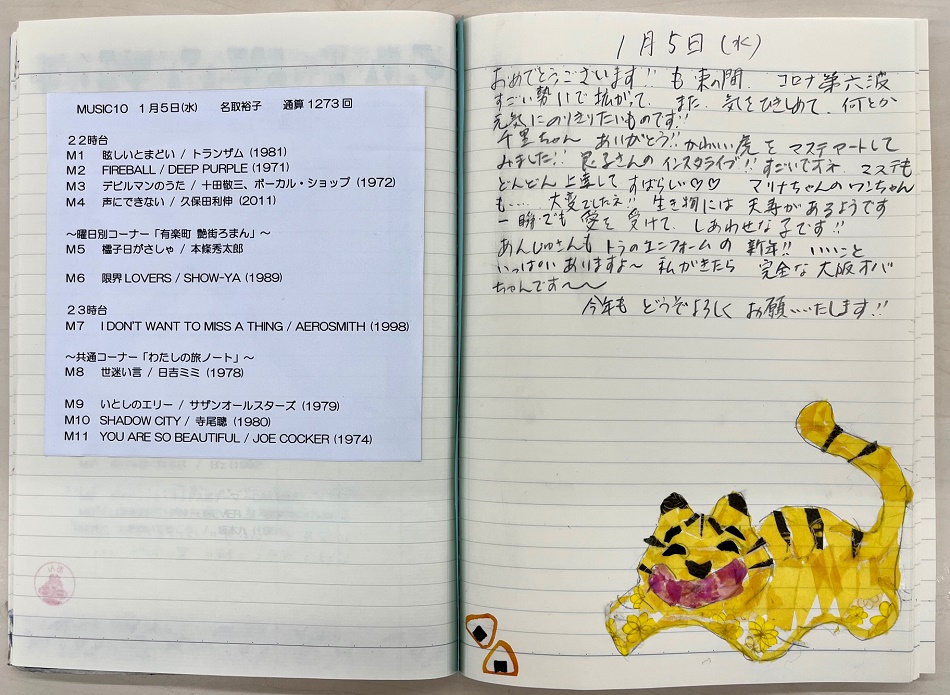 MUSIC10 1月5日(水) 名取裕子 通算1273回
22時台
M1 眩しいとまどい / トランザム (1981)
M2 FIREBALL / DEEP PURPLE (1971)
M3 デビルマンのうた / 十田敬三、ボーカル・ショップ (1972)
M4 声にできない / 久保田利伸 (2011)
~曜日別コーナー「有楽町 艶街ろまん」~
M5 橿子日がさしゃ / 本條秀太郎
M6 限界LOVERS / SHOW-YA (1989)
23時台
M7 I DON'T WANT TO MISS A THING / AEROSMITH (1998)
~共通コーナー「わたしの旅ノート」~
M8 世迷い言 / 日吉ミミ (1978)
M9 いとしのエリー / サザンオールスターズ (1979)
M10 SHADOW CITY / 寺尾聰 (1980)
M11 YOU ARE SO BEAUTIFUL / JOE COCKER (1974)
1月5日(水)
おめでとうございます!! も束の間、コロナ第六波
すごい勢いで拡がって、また、気をひきしめて、何とか
元気にのりきりたいものです!!
千里ちゃん ありがとう!! かわいい虎をマステアートして
みました!! 恵子さんのインスタライブ!! すごいですネ、マステも
どんどん上達して すばらしい♡♡ マリナちゃんのワンちゃん
も… 大変でしたネ!! 生き物には 天寿があるようです
一瞬でも 愛を受けて、しあわせな子です!!
あんじゅさんも トラのユニフォームの 新年!! いいこと
いっぱいありますよ~ 私がきたら 完全な大阪オバ
ちゃんです~~
今年も どうぞよろしく お願いいたします!!